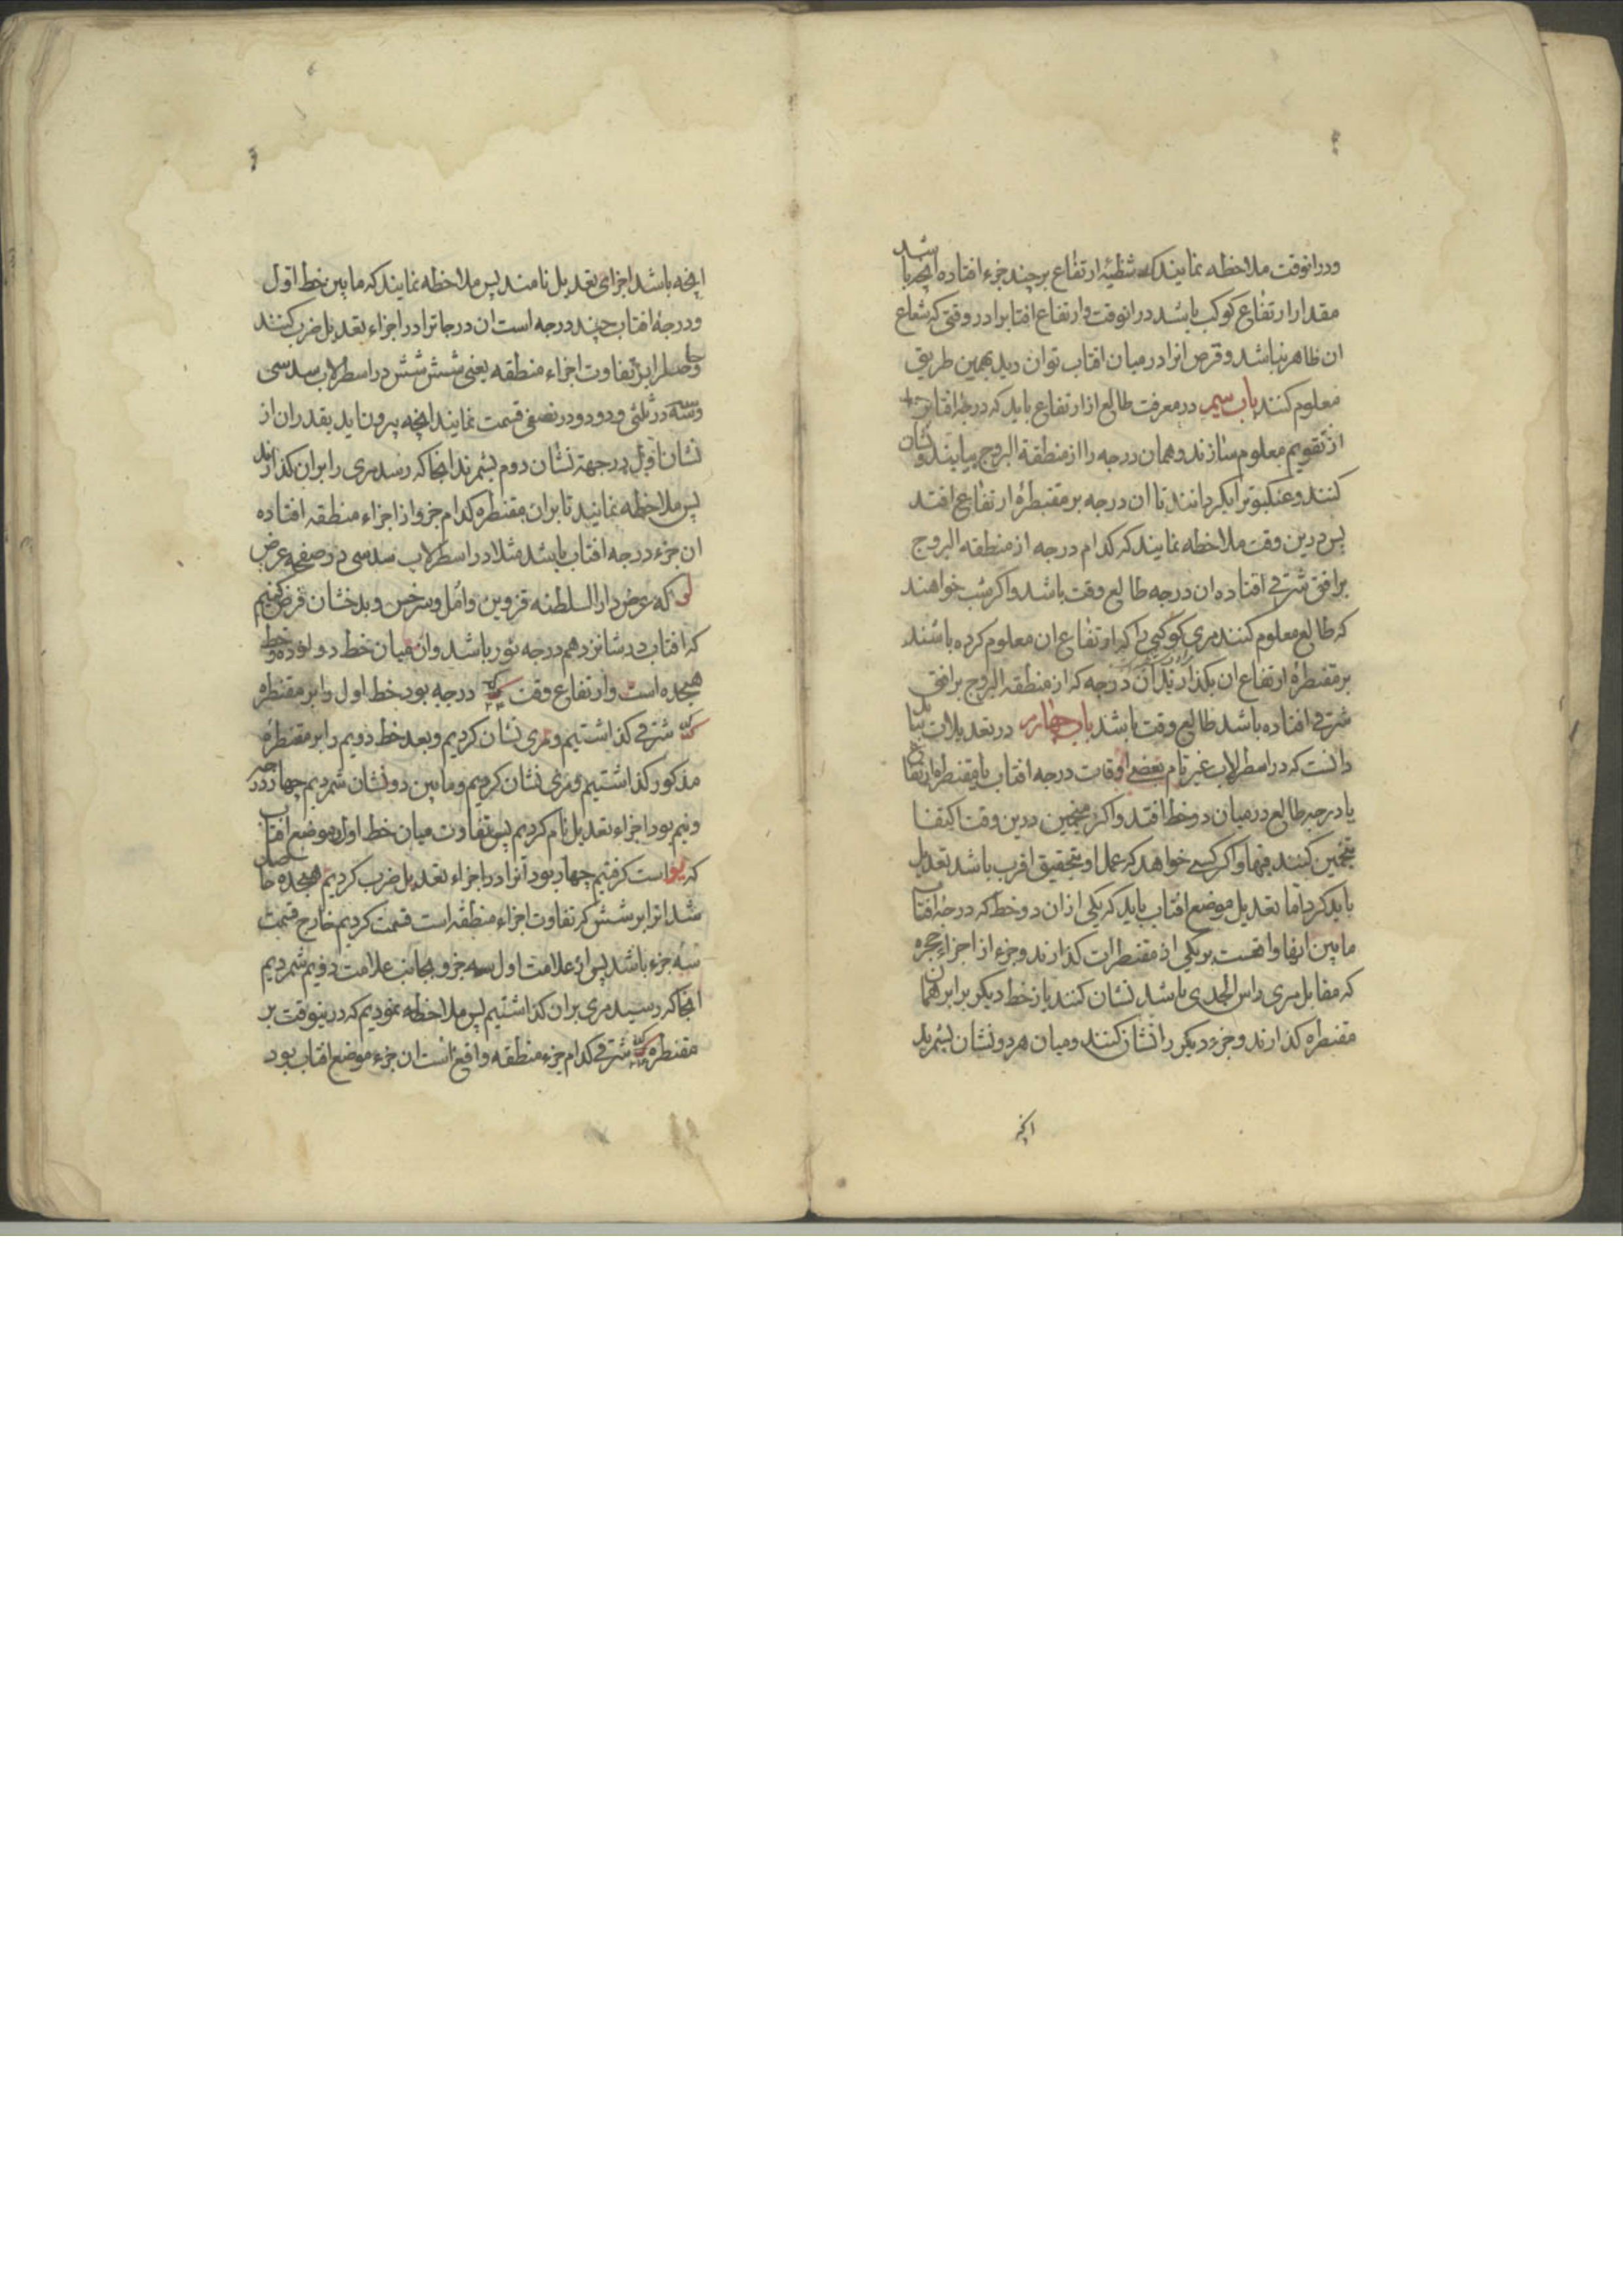 ودرانوقت ملاحظه نمایند که شظیهٔ ارتفاع بر چند جزء افتاده انچه باشد
مقدار ارتفاع کوکب باشد درانوقت وارتفاع افتابرا در وقتی که شعاع
ان ظاهر نباشد وقرص انرا در میان افتاب توان دید بهمین طریق
معلوم کنند باب سیم در معرفت طالع از ارتفاع باید که درجهٔ افتاب را
از تقویم معلوم سازند وهمان درجه را از منطقة البروج بیابند ونشان
کنند وعنکبوترا بگردانند تا ان درجه بر مقنطرهٔ ارتفاع افتد
پس درین وقت ملاحظه نمایند که کدام درجه از منطقه البروج
بر افق شرقی افتاده ان درجه طالع وقت باشد واکر شب خواهند
که طالع معلوم کنند مری کوکبی را که ارتفاع ان معلوم کرده باشند
بر مقنطرهٔ ارتفاع ان بگذارند ان درجه که از منطقه البروج بر افق
شرقی افتاده باشد طالع وقت باشد باب چهارم در تعدیلات بباید
دانست که در اسطرلاب غیر تام بعضی اوقات درجه افتاب یا مقنطره ارتفاع
یا درجه طالع در میان دو خط افتد واکر منجمین درین وقت اکتفا
بتخمین کنند فبها واکر کسی خواهد که عمل او بتحقیق اقرب باشد تعدیل
باید کرد اما تعدیل موضع افتاب باید که یکی ازان دو خط که درجهٔ افتاب
مابین انها واقعست بر یکی از مقنطرات کذارند وجزء از اجزاء حجره
که مقابل مری راس الجدی باشد نشان کنند باز خط دیکر برابر همان
مقنطره کذارند وجزء دیکر را نشان کنند ومیان هر دو نشان بشمرند
انچه
انچه باشد اجزای تعدیل نامند پس ملاحظه نمایند که مابین خط اول
ودرجهٔ افتاب چند درجه است ان درجاترا در اجزاء تعدیل ضرب کنند
وحاصلرا بر تفاوت اجزاء منطقه یعنی شش شش در اسطرلاب سدسی
وسه سه در ثلثی ودو دو در نصفی قسمت نمایند انچه بیرون اید بقدر ان از
نشان اول در جهة نشان دوم بشمرند انجا که رسد مری را بران کذارند
پس ملاحظه نمایند تا بران مقنطره کدام جزو از اجزاء منطقه افتاده
ان جزء درجه افتاب باشد مثلا در اسطرلاب سدسی در صفحهٔ عرض
لو که عرض دار السلطنه قزوین وامل وسرخس وبدخشان فرض کنیم
که افتاب در شانزدهم درجه ثور باشد وان میان خط دوازده وخط
هیجده است وارتفاع وقت درجه بود خط اول را بر مقنطره
شرقی کذاشتیم ومری نشان کردیم وبعد خط دویم را بر مقنطرهٔ
مذکور کذاشتیم ومری نشان کردیم ومابین دو نشان شمردیم چهار درجه
ونیم بود اجزاء تعدیل نام کردیم پس تفاوت میان خط اول وموضع افتاب
که یو است کرفتیم چهار بود آنرا در اجزاء تعدیل ضرب کردیم هیجده حاصل
شد انرا بر شش که تفاوت اجزاء منطقه است قسمت کردیم خارج قسمت
سه جزء باشد پس از علامت اول سه جزو بجانب علامت دویم شمردیم
انجا که رسید مری بران کذاشتیم پس ملاحظه نمودیم که درینوقت بر
مقنطره شرقی کدام جزء منطقه واقع است ان جزء موضع افتاب بود